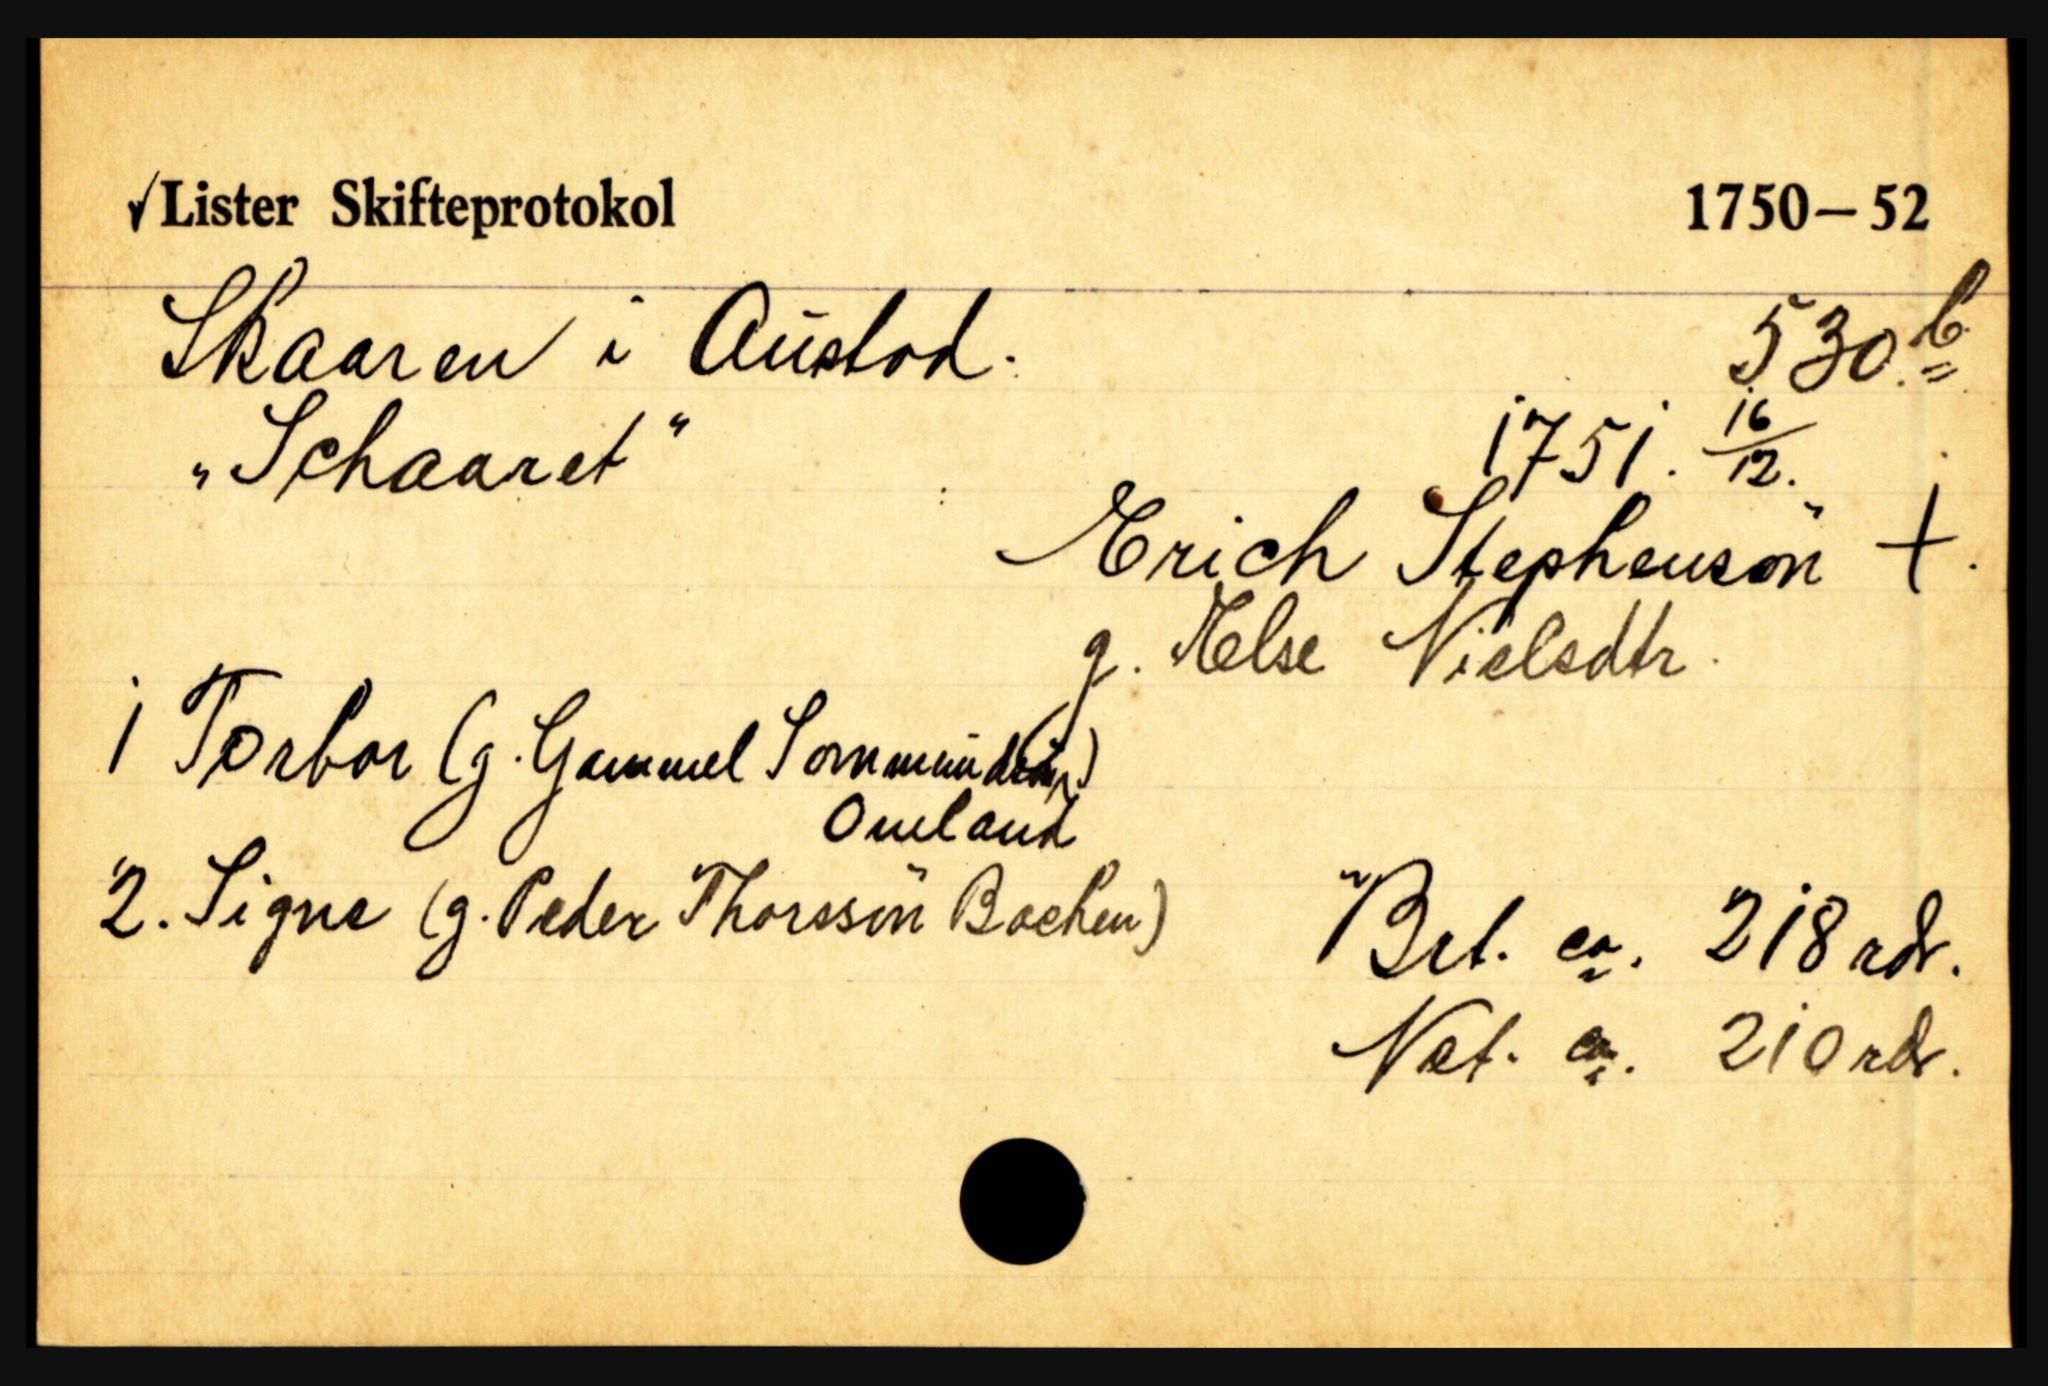 ✓ Lister Skifteprotokol 1750–52
Skaaren i Austod. 530 b.
„Schaaret" 1751. 16/12.
Erich Stephensön †.
g. Else Nielsdtr.
1 Torbor (g. Gammel Sommund
Omland
2. Signe (g. Peder Thorssön Bachen)
Brt. ca. 218 rdr.
Net. ca. 210 rdr.